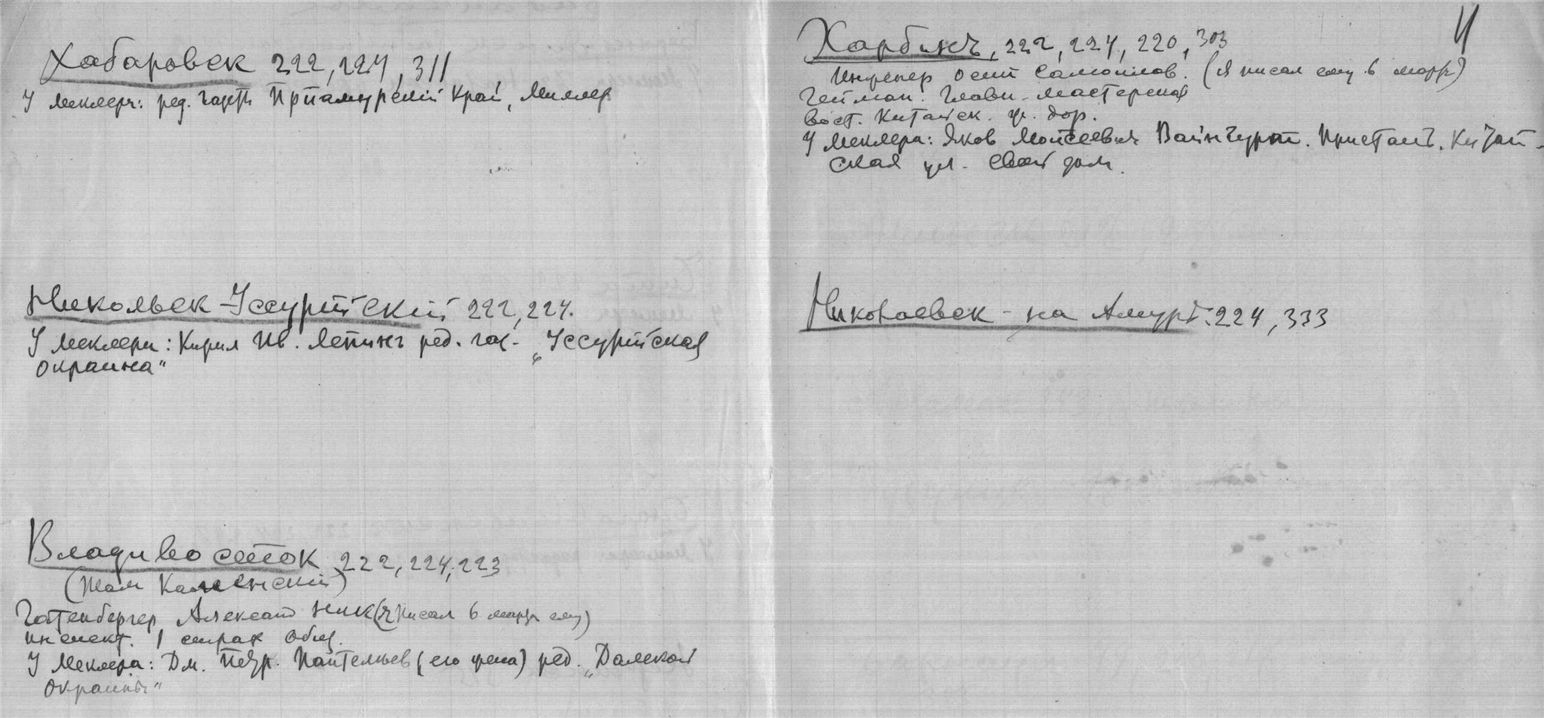 Хабаровск 222, 224, 311
У Меклера: ред. газеты Приамурский Край, Миллер
Никольск-Уссурийский 222, 224.
У Меклера: Кирил Ив. Лепинг ред. газ. „Уссурийская
окраина“
Владивосток 222, 224, 223
(Там Каменский)
Гутенбергер Александ Ник (я писал 6 марта ему)
инспект. 1 страх общ.
У Меклера: Дм. Петр. Пантелеев (его жена) ред. „Далекой
окраины“
11
Харбинъ, 222, 224, 220, 303
Инженер Осип Самойлов. (я писал ему 6 марта)
Гейман. Главн. мастерская
Вост. Китайск. ж. дор.
У Меклера: Яков Моисеевич Вайнгурт. Пристань. Китай-
ская ул. свой дом.
Николаевск-на Амурѣ. 224, 333